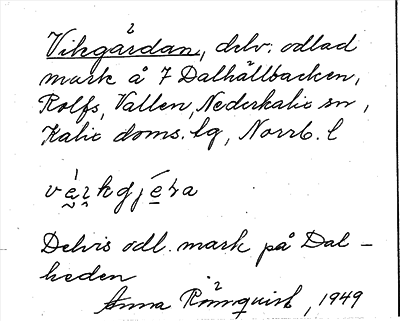 Vikgårdan, delv. odlad
mark å 7 Dalhällbacken,
Rolfs, Vallen, Nederkalix sn,
Kalix doms. lg, Norrb. l
Delvis odl. mark på Dal-
heden
Anna Rönnquist, 1949